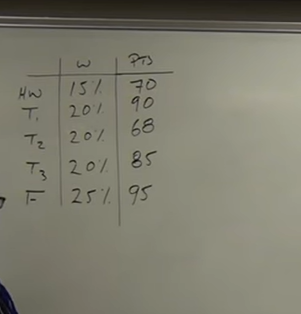 W PTS
HW 15% 70
T1 20% 90
T2 20% 68
T3 20% 85
F 25% 95